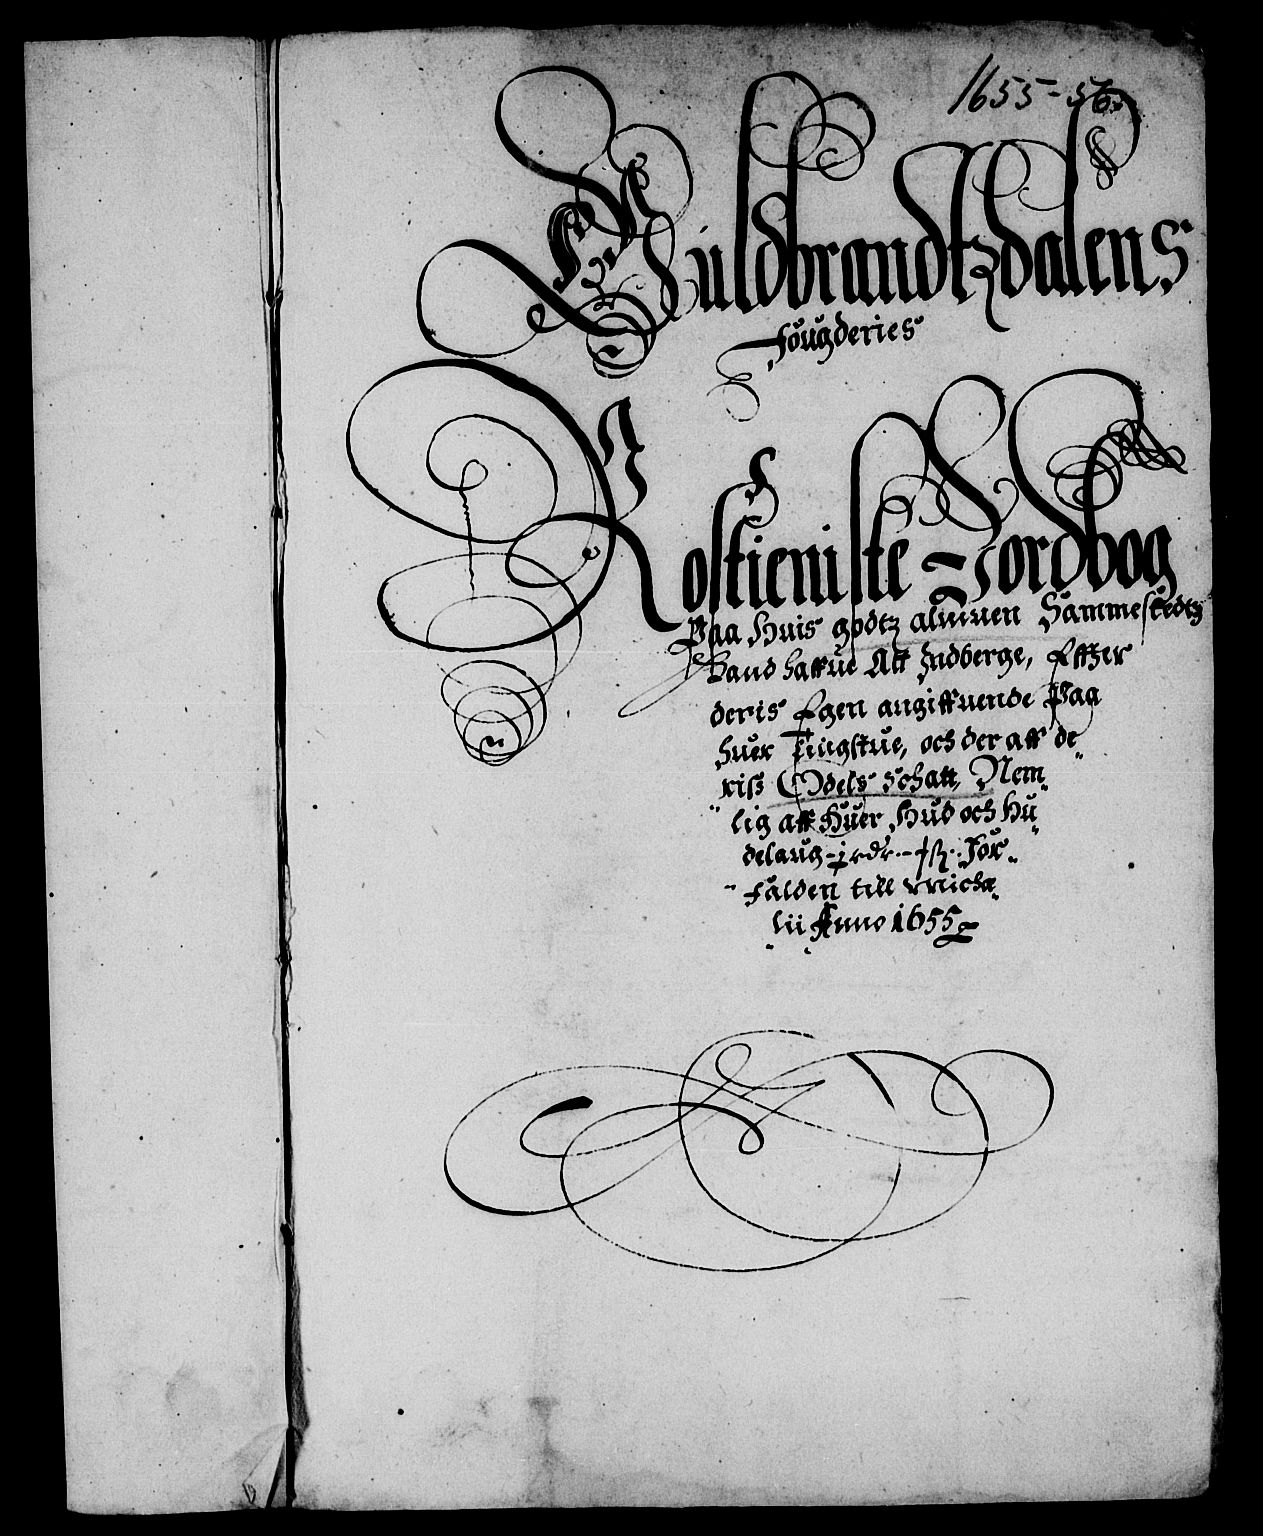 1655-56.
Guldbrandtzdalens
fougderies
Rostieniste Jordbog
Paa Huis godtz almuen Sammestedtz
Band haffue Att Indberge, Effter
deris Egen angiffuende Paa
huer Tingstue, och der aff de
riss Odels schatt, Nem
lig aff Huer Hud och Hu
delaug
falden till Micha
lii Anno 1655